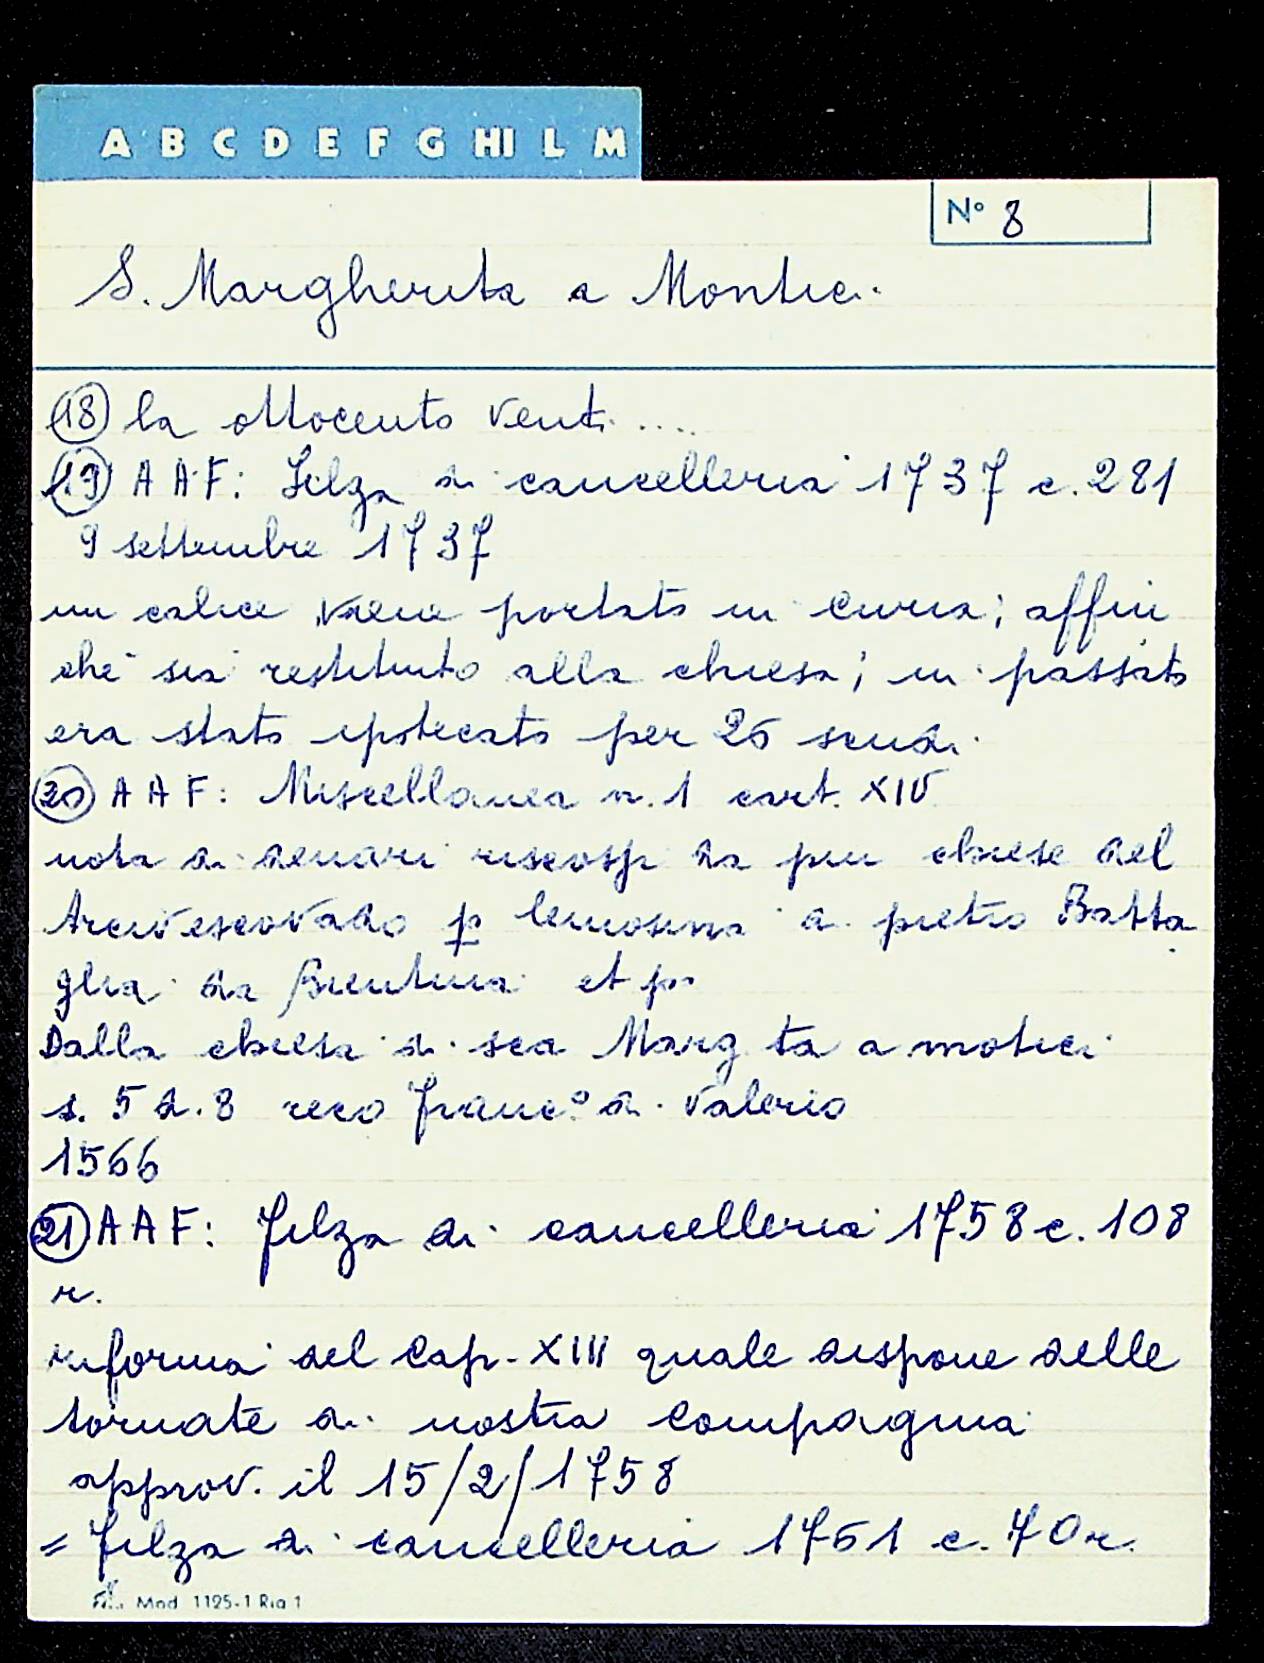 A B C D E F G HI L M
N° 8
S. Margherita a Montici
(18) la ottocento venti ....
(19) A A F: Filza di cancelleria 1737 c. 281
9 settembre 1737
un calice viene portato in Curia; affin
ché sia restituito alla chiesa; in passato
era stato ipotecato per 26 scudi.
(20) A A F: Miscellanea n. 1 cart. XIV
nota di denari riscossi da piu chiese del
Arcivescovado p lemosina a pietro Batta
glia da Bientina et po
Dalla chiesa di sca Marg ta a motici
s. 5 d. 8 reco franc.º di Valerio
1566
(21) A A F: Filza di cancelleria 1758 c. 108
r.
riforma del Cap. XIII quale dispone delle
tornate di nostra Compagnia
approv. il 15/2/1758
= Filza di cancelleria 1761 c. 70r.
Mod 1125-1 Rig 1